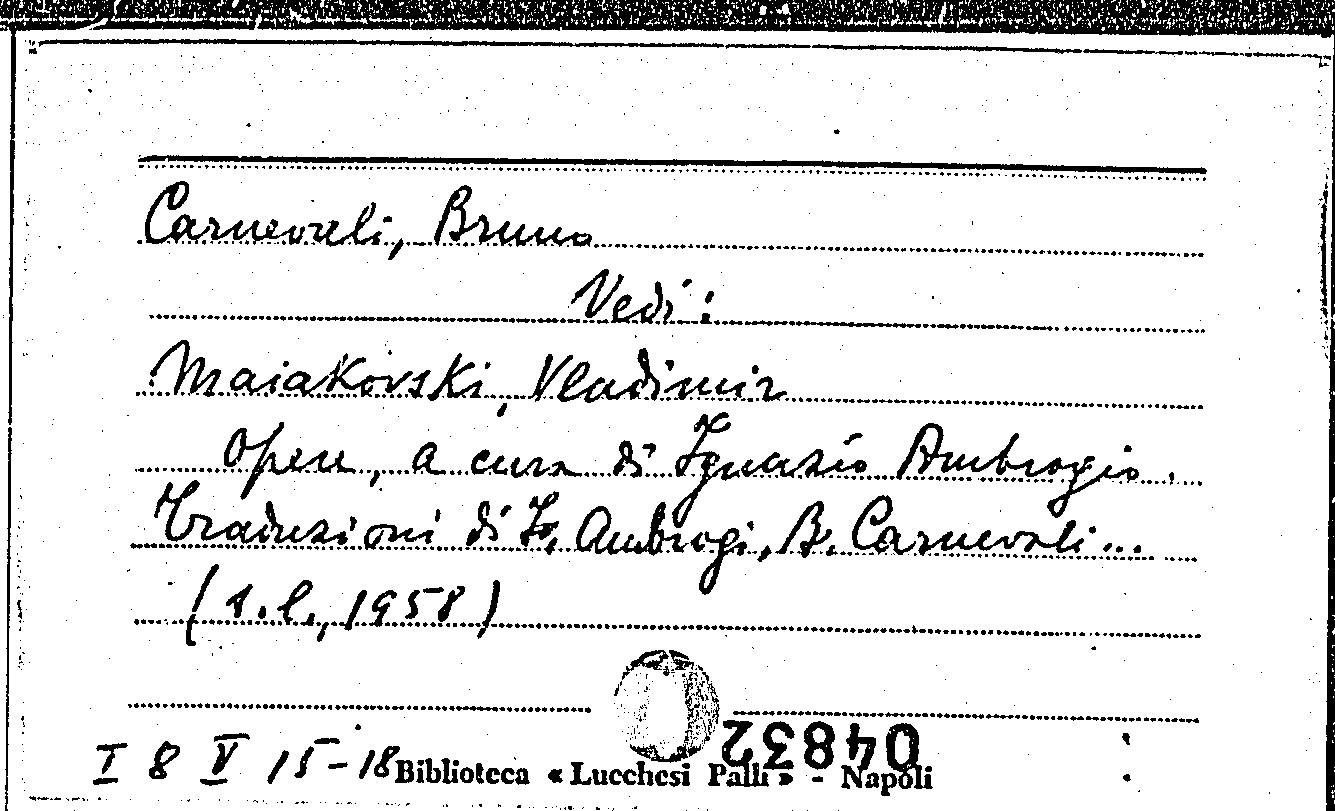 Carnevali, Bruno
Vedi:
Maiakovski, Vladimir
Opere, a cura di Ignazio Ambrogio.
Traduzioni di I. Ambrogi, B. Carnevali...
(s.l., 1958)
04832
I 8 V 15-18 Biblioteca « Lucchesi Palli » - Napoli